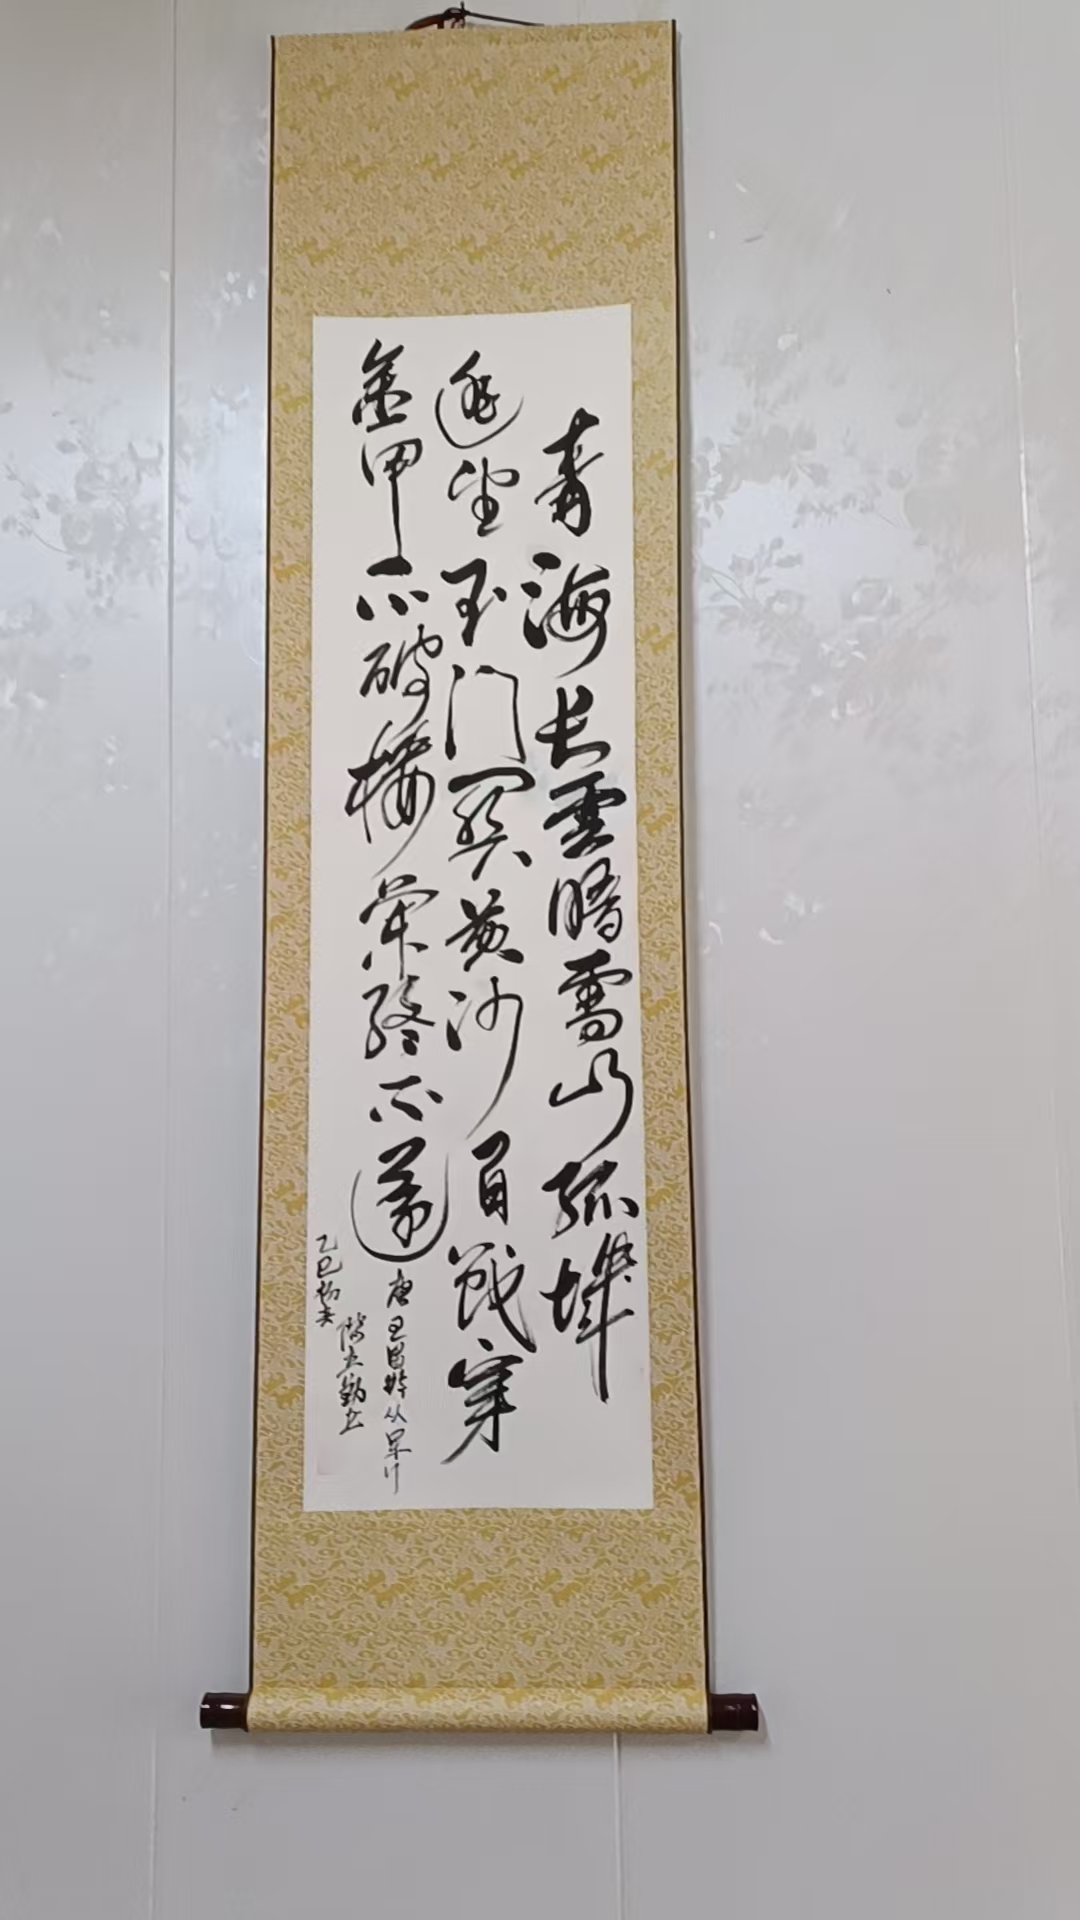 青海长雲暗雪山孤城
遥望玉门関黄沙百戰穿
金甲不破楼蘭終不還
唐王昌龄从军行
乙巳初夏